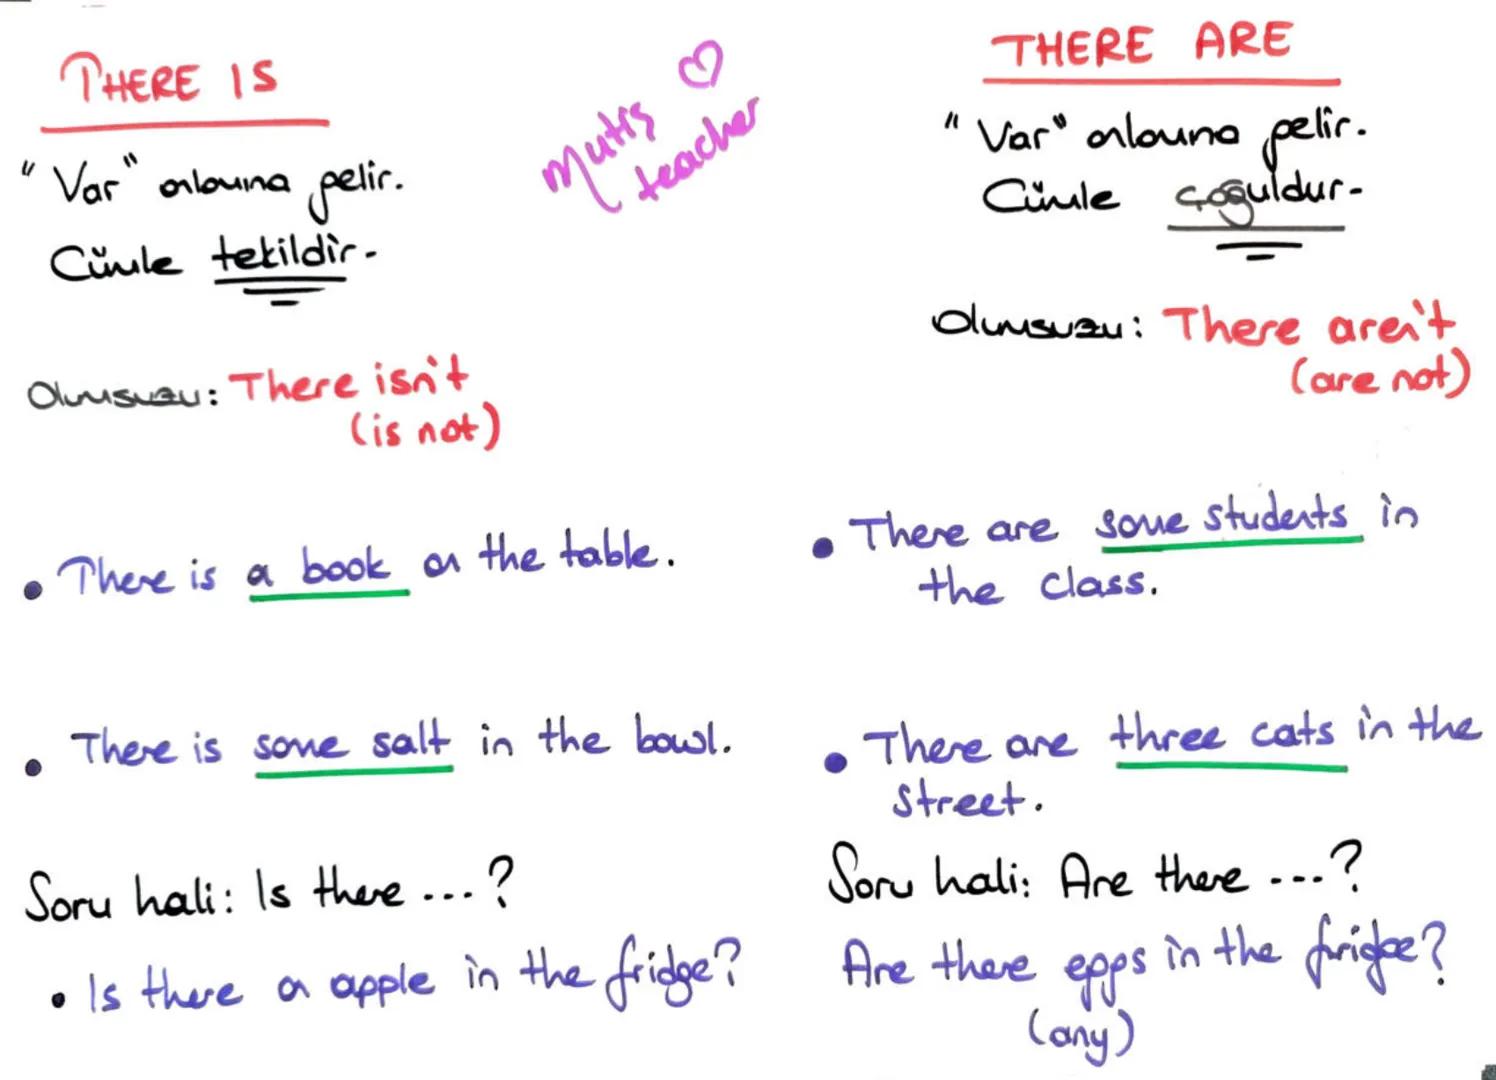 THERE IS
"Var" anlamına gelir.
Cümle tekildir.
Olumsuzu: There isn't
(is not)
• There is a book on the table.
• There is some salt in the bowl.
Soru hali: Is there ...?
• Is there an apple in the fridge?
Mutiş
teacher
THERE ARE
"Var" anlamına gelir.
Cümle çoğuldur.
Olumsuzu: There aren't
(are not)
• There are some students in
the class.
• There are three cats in the
street.
Soru hali: Are there ...?
Are there eggs in the fridge?
(any)